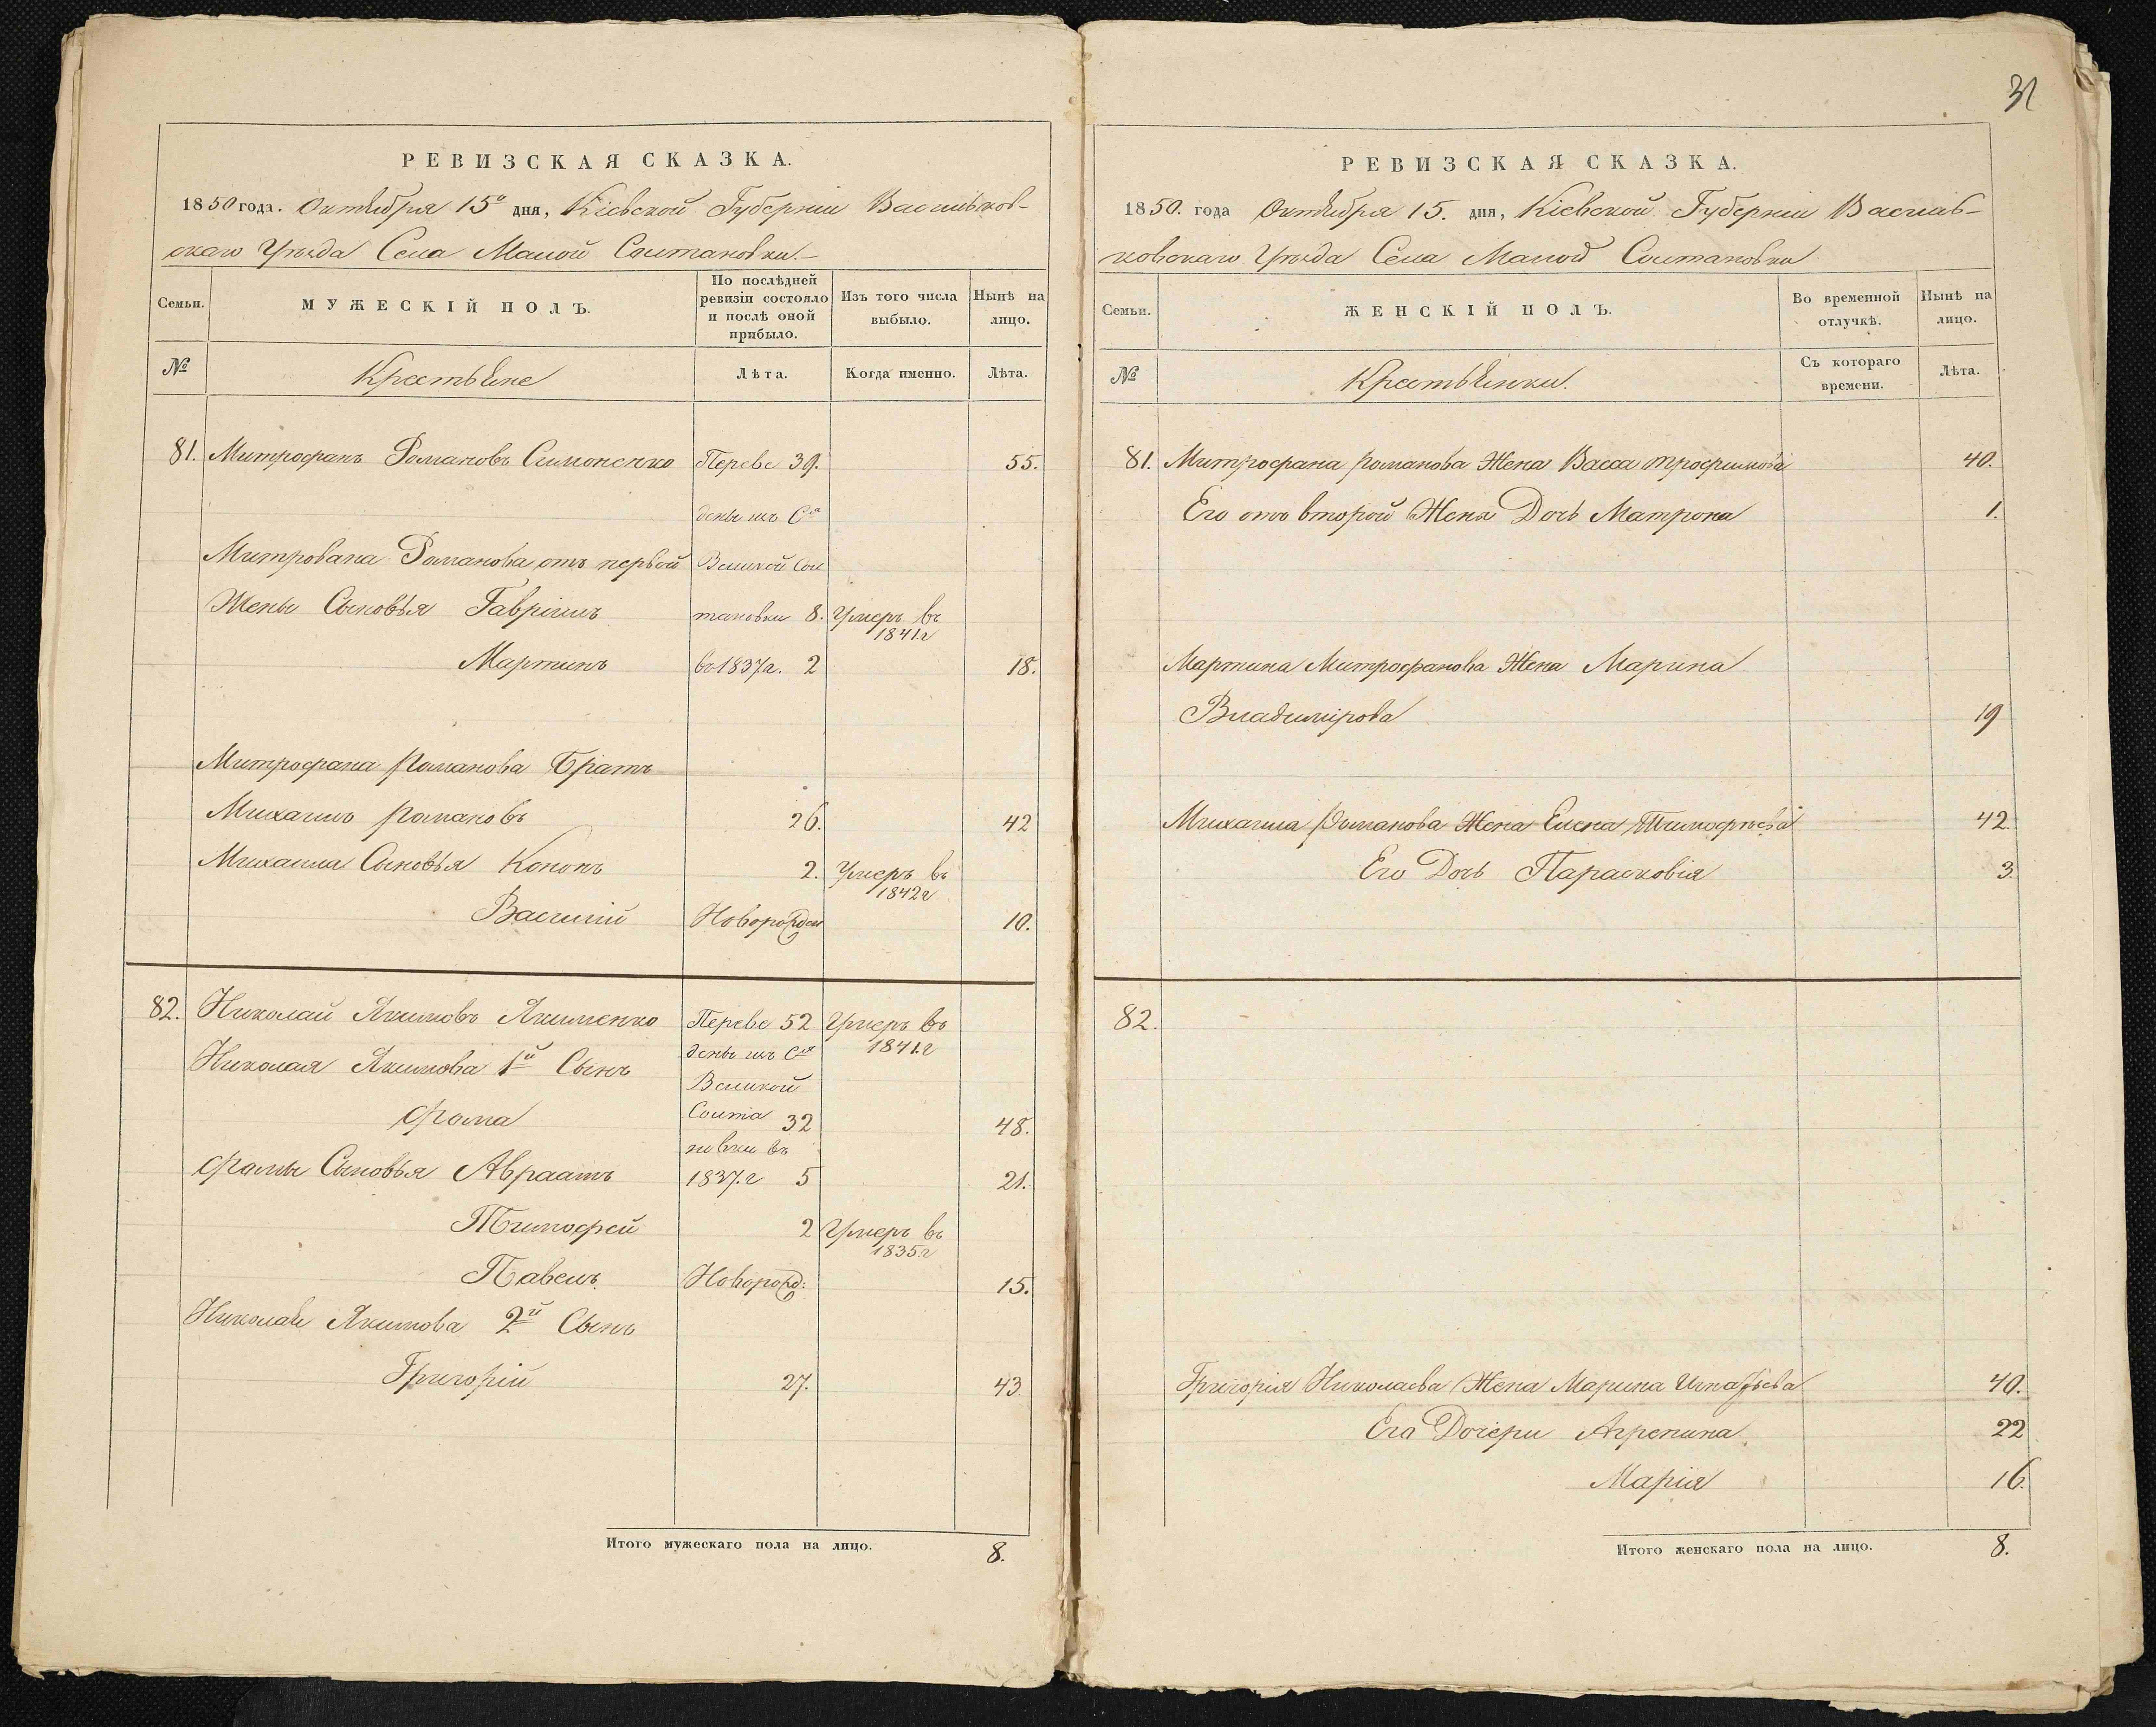 31
РЕВИЗСКАЯ СКАЗКА.
1850 года. Октября 15º дня, Кіевской Губерніи Васильков-
скаго Уѣзда Села Малой Солтановки.
Семьи.
МУЖЕСКІЙ ПОЛЪ.
По послѣдней ревизіи состояло и послѣ оной прибыло.
Изъ того числа выбыло.
Нынѣ на лицо.
№
Крестьяне
Лѣта.
Когда именно.
Лѣта.
81. Митрофанъ Романовъ Симоненко Переве 39. 55.
дены изъ Сла
Митрована Романова отъ первой Великой Сол
Жены Сыновья Гавріилъ тановки 8. Умеръ въ 1841г
Мартинъ въ 1837г. 2 18.
Митрофана Романова Братъ
Михаилъ Романовъ 26. 42
Михаила Сыновья Кононъ 2. Умеръ въ 1842г
Василій Новорожден 10.
82. Николай Якимовъ Якименко Переве 52 Умеръ въ
дены изъ Сла 1841.г
Николая Якимова 1й Сынъ
Великой
Фома Солта 32 48.
новки въ
Фомы Сыновья Авраамъ 1837.г 5 21.
Тимофей 2 Умеръ въ 1835.г
Павелъ Новорожд: 15.
Николая Якимова 2й Сынъ
Григорій 27. 43.
Итого мужескаго пола на лицо. 8.
РЕВИЗСКАЯ СКАЗКА.
1850. года Октября 15. дня, Кіевской Губерніи Василь-
ковскаго Уѣзда Села Малой Солтановки
Семьи.
ЖЕНСКІЙ ПОЛЪ.
Во временной отлучкѣ.
Нынѣ на лицо.
№
Крестьянки.
Съ котораго времени.
Лѣта.
81. Митрофана Романова Жена Васса Трофимова 40.
Его отъ второй Жены Дочь Матрона 1.
Мартина Митрофанова Жена Марина
Владимірова 19
Михаила Романова Жена Елена Тимофѣева 42.
Его Дочь Парасковія 3.
82.
Григорія Николаева Жена Марина Игнатьева 40.
Его Дочери Агрепина 22
Марія 16.
Итого женскаго пола на лицо. 8.